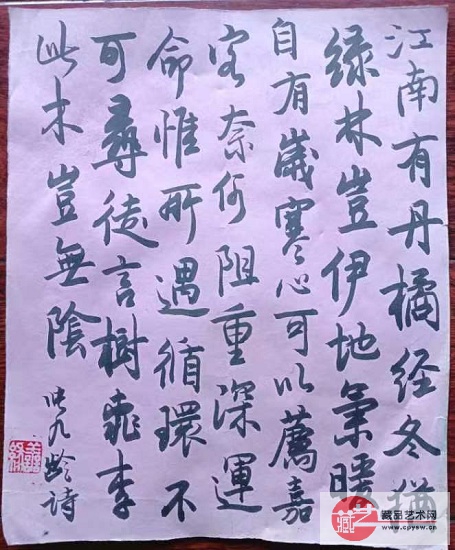 江南有丹橘经冬犹
绿林豈伊地氣暖
自有歲寒心可以薦嘉
客奈何阻重深運
命惟所遇循環不
可尋徒言樹桃李
此木豈無陰
张九龄诗
藏品艺术网
www.cpysw.cn